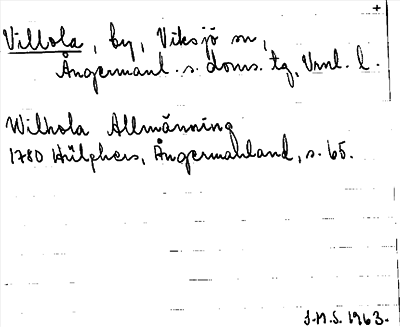 +
Villola, by, Viksjö sn,
Ångermanl. s. doms. tg, Vrnl. l.
Wilhola Allmänning
1780 Hülphers, Ångermanland, s. 65.
S.M.S. 1963.